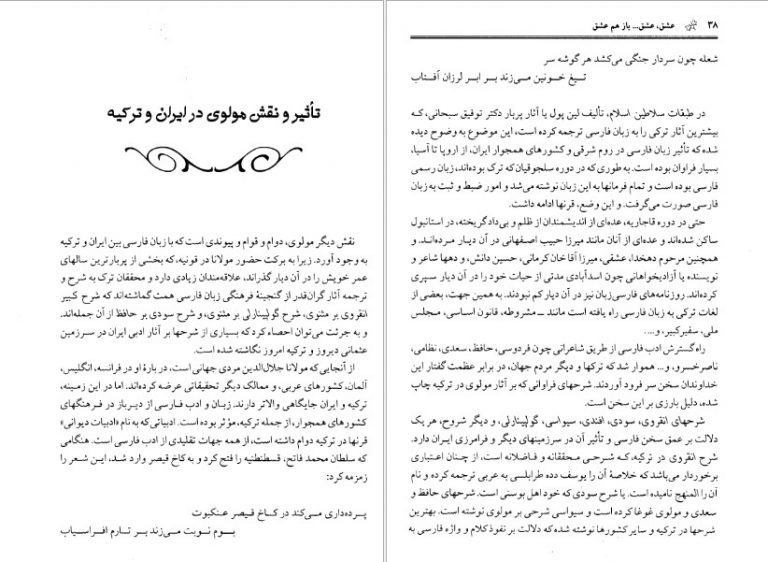 تأثیر و نقش مولوی در ایران و ترکیه
نقش دیگر مولوی، دوام و قوام و پیوندی است که با زبان فارسی بین ایران و ترکیه
به وجود آورد. زیرا به برکت حضور مولانا در قونیه، که بخشی از پربارترین سالهای
عمر خویش را در آن دیار گذراند، علاقه‌مندان زیادی دارد و محققان ترک به شرح و
ترجمه آثار گران‌قدر از گنجینهٔ فرهنگی زبان فارسی همت گماشته‌اند که شرح کبیر
انقروی بر مثنوی، شرح گولپینارلی بر مثنوی، و شرح سودی بر حافظ از آن جمله‌اند.
و به جرئت می‌توان احصاء کرد که بسیاری از شرحها بر آثار ادبی ایران در سرزمین
عثمانی دیروز و ترکیه امروز نگاشته شده است.
از آنجایی که مولانا جلال‌الدین مردی جهانی است، در بارهٔ او در فرانسه، انگلیس،
آلمان، کشورهای عربی، و ممالک دیگر تحقیقاتی عرضه کرده‌اند. اما در این زمینه،
ترکیه و ایران جایگاهی والاتر دارند. زبان و ادب فارسی از دیرباز در فرهنگهای
کشورهای همجوار، از جمله ترکیه، مؤثر بوده است. ادبیاتی که به نام «ادبیات دیوانی»
قرنها در ترکیه دوام داشته است، از همه جهات تقلیدی از ادب فارسی است. هنگامی
که سلطان محمد فاتح، قسطنطنیه را فتح کرد و به کاخ قیصر وارد شد، این شعر را
زمزمه کرد:
پرده‌داری می‌کند در کاخ قیصر عنکبوت
بوم نوبت می‌زند بر تارم افراسیاب
۳۸ عشق، عشق... باز هم عشق
شعله چون سردار جنگی می‌کشد هر گوشه سر
تیغ خونین می‌زند بر ابر لرزان آفتاب
در طبقات سلاطین اسلام، تألیف لین پول یا آثار پربار دکتر توفیق سبحانی، که
بیشترین آثار ترکی را به زبان فارسی ترجمه کرده است، این موضوع به وضوح دیده
شده که تأثیر زبان فارسی در روم شرقی و کشورهای همجوار ایران، از اروپا تا آسیا،
بسیار فراوان بوده است. به طوری که در دوره سلجوقیان که ترک بوده‌اند، زبان رسمی
فارسی بوده است و تمام فرمانها به این زبان نوشته می‌شد و امور ضبط و ثبت به زبان
فارسی صورت می‌گرفت. و این وضع، قرنها ادامه داشت.
حتی در دوره قاجاریه، عده‌ای از اندیشمندان از ظلم و بی‌داد گریخته، در استانبول
ساکن شده‌اند و عده‌ای از آنان مانند میرزا حبیب اصفهانی در آن دیار مرده‌اند. و
همچنین مرحوم دهخدا، عشقی، میرزا آقا خان کرمانی، حسین دانش، و دهها شاعر و
نویسنده یا آزادیخواهانی چون اسدآبادی مدتی از حیات خود را در آن دیار سپری
کرده‌اند. روزنامه‌های فارسی‌زبان نیز در آن دیار کم نبودند. به همین جهت، بعضی از
لغات ترکی به زبان فارسی راه یافته است مانند ـ مشروطه، قانون اساسی، مجلس
ملی، سفیرکبیر، و....
راه گسترش ادب فارسی از طریق شاعرانی چون فردوسی، حافظ، سعدی، نظامی،
ناصرخسرو، و... هموار شد که ترکها و دیگر مردم جهان، در برابر عظمت گفتار این
خداوندان سخن سر فرود آوردند. شرحهای فراوانی که بر آثار مولوی در ترکیه چاپ
شده، دلیل بارزی بر این سخن است.
شرحهای انقروی، سودی، افندی، سیواسی، گولپینارلی، و دیگر شروح، هر یک
دلالت بر عمق سخن فارسی و تأثیر آن در سرزمینهای دیگر و فرامرزی ایران دارد.
شرح انقروی در ترکیه، که شرحی محققانه و فاضلانه است، از چنان اعتباری
برخوردار می‌باشد که خلاصهٔ آن را یوسف دده طرابلسی به عربی ترجمه کرده و نام
آن را المنهج نامیده است. یا شرح سودی که خود اهل بوسنی است. شرحهای حافظ و
سعدی و مولوی غوغا کرده است و سیواسی شرحی بر مولوی نوشته است. بهترین
شرحها در ترکیه و سایر کشورها نوشته شده که دلالت بر نفوذ کلام و واژه فارسی به